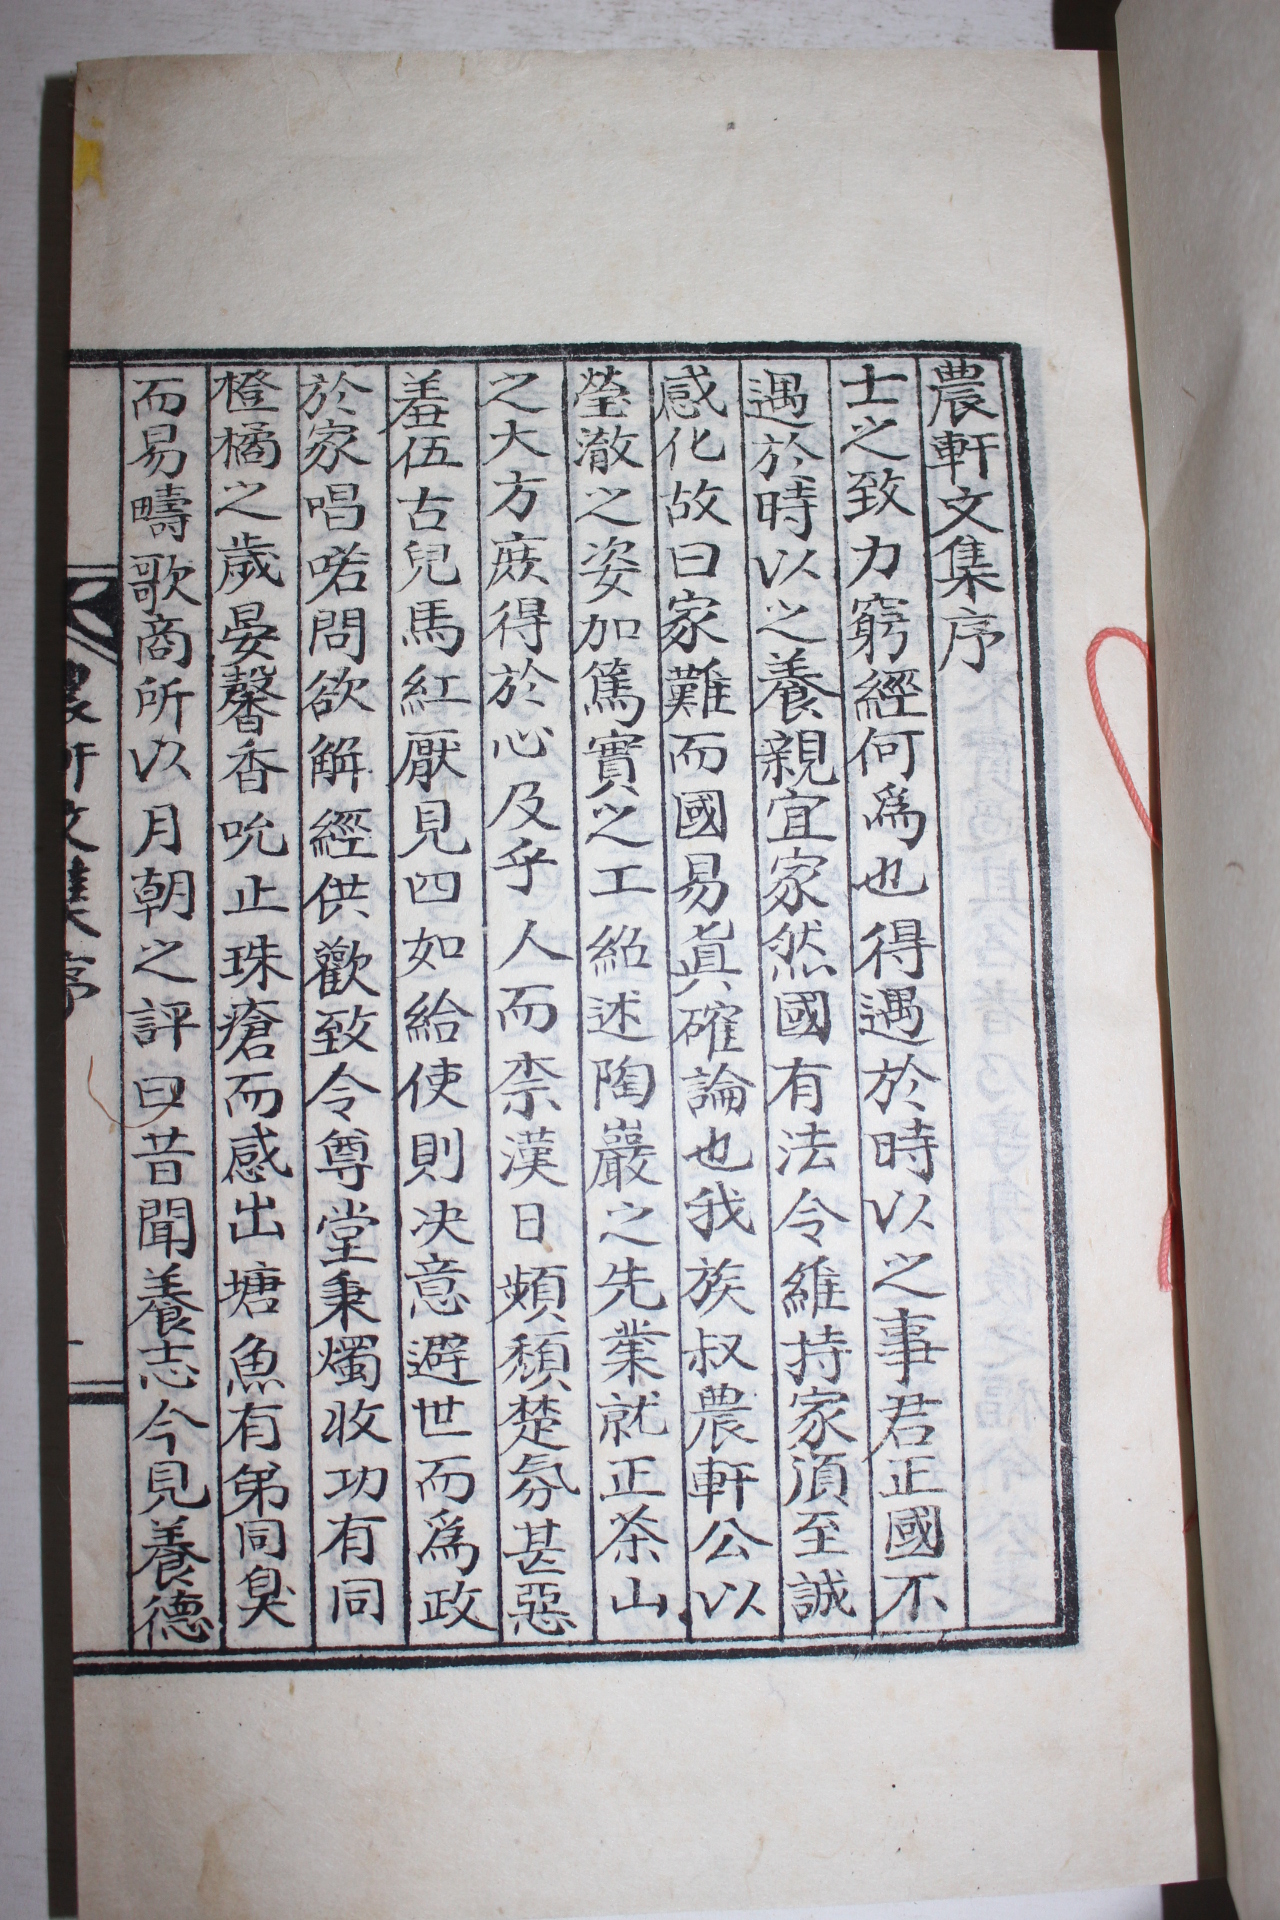 農軒文集序
士之致力窮經何爲也得遇於時以之事君正國不
遇於時以之養親宜家然國有法令維持家湏至誠
感化故曰家難而國易眞確論也我族叔農軒公以
瑩澈之姿加篤實之工紹述陶巖之先業就正茶山
之大方庻得於心及乎人而柰漢日頰頹楚氛甚惡
羞伍古兒馬紅厭見四如給使則决意避世而爲政
於家唱喏問欲解經供歡致令尊堂秉燭收功有同
橙橘之歲晏馨香吮止珠瘡而感出塘魚有弟同臭
而易疇歌商所以月朝之評曰昔聞養志今見養德
農軒文集序
一